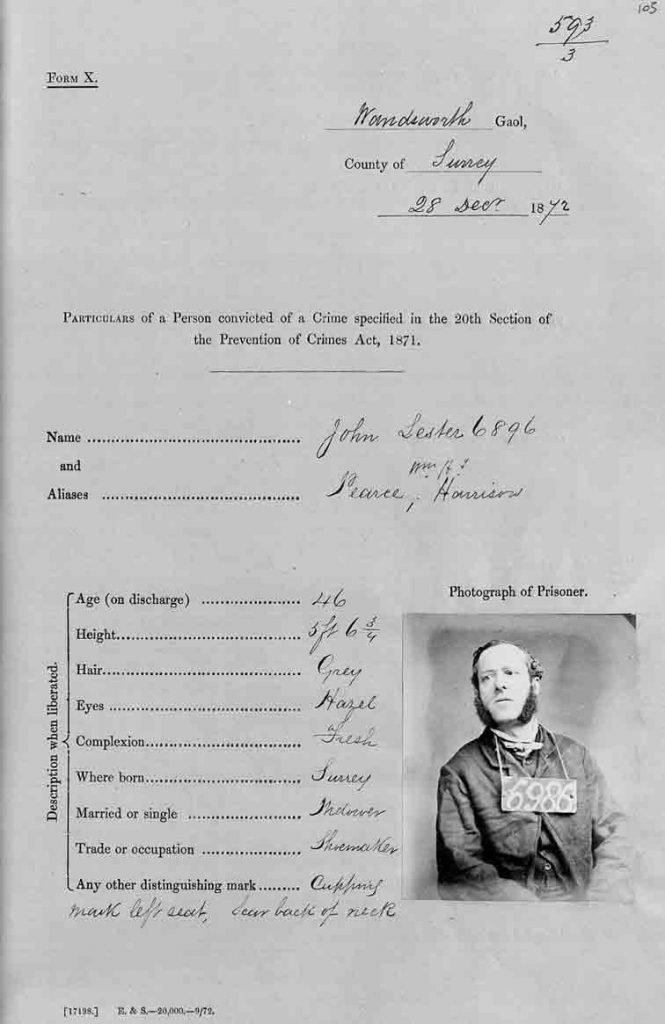 105
593
3
FORM X.
Wandsworth Gaol,
County of Surrey
28 Decr 1872
PARTICULARS of a Person convicted of a Crime specified in the 20th Section of
the Prevention of Crimes Act, 1871.
Name ........................................ John Lester 6896
and
Wm H
Aliases ........................................ Pearce, Harrison
Description when liberated.
Photograph of Prisoner.
Age (on discharge) .................... 46
Height.................................... 5ft 6 3/4
Hair....................................... Grey
Eyes ...................................... Hazel
Complexion............................. Fresh
Where born............................. Surrey
Married or single .................... Widower
Trade or occupation ................ Shoemaker
Any other distinguishing mark......... Cupping
mark left seat, Scar back of neck
6986
[17198.] E. & S.—20,000.—9/72.